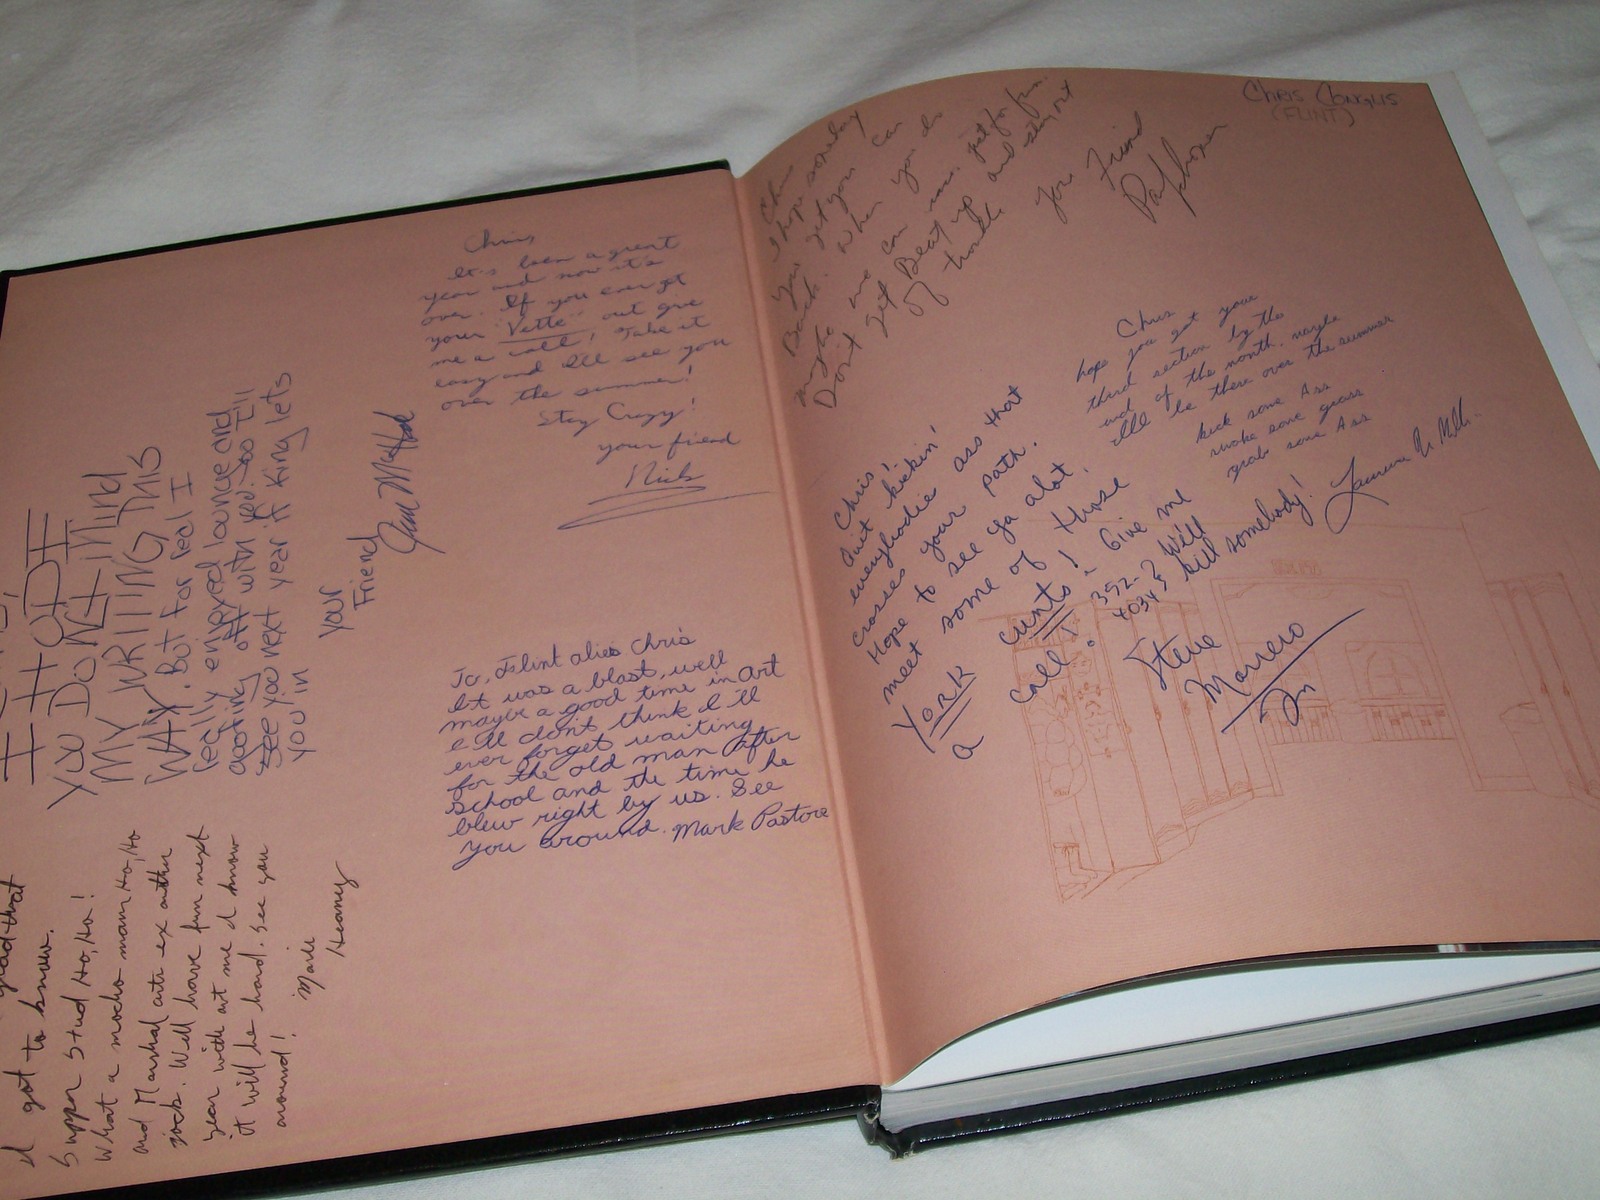 Chris,
It's been a great
year and now it's
over. If you ever get
your "Vette" out give
me a call! Take it
easy and I'll see you
over the summer!
Stay Crazy!
your friend
Nick
YOU DON'T MIND
MY WRITING THIS
WAY. But for real I
really enjoyed lounce and
with you. I'll
See you next year if King lets
you in
your
Friend
To, Flint alies Chris
It was a blast, well
maybe a good time in art
I'll don't think I'll
ever forget waiting
for the old man after
school and the time he
blew right by us. See
you around. Mark Pastore
I got to know.
Supper Stud Ho, Ho!
What a macho man Ho, Ho
and Marshal arts ex
jock. Will have fun next
year with art me I know
it will be hard. See you
around!
Mark
Heaney
Chris Conglis
(FLINT)
Chris
I hope someday
you get your
Back. When you do
maybe we can run. just for fun.
Don't get Beat up and stay out
of trouble
your Friend
Chris
hope you get your
third section by the
end of the month. maybe
I'll be there over the summer
kick some Ass
smoke some grass
grab some Ass
Chris!
Quit kickin'
everybodie ass that
crosses your path.
Hope to see ya alot.
meet some of those
York cunts! - Give me
a call! 392-
4034 & We'll
kill somebody!
Steve
Marrero
Jr